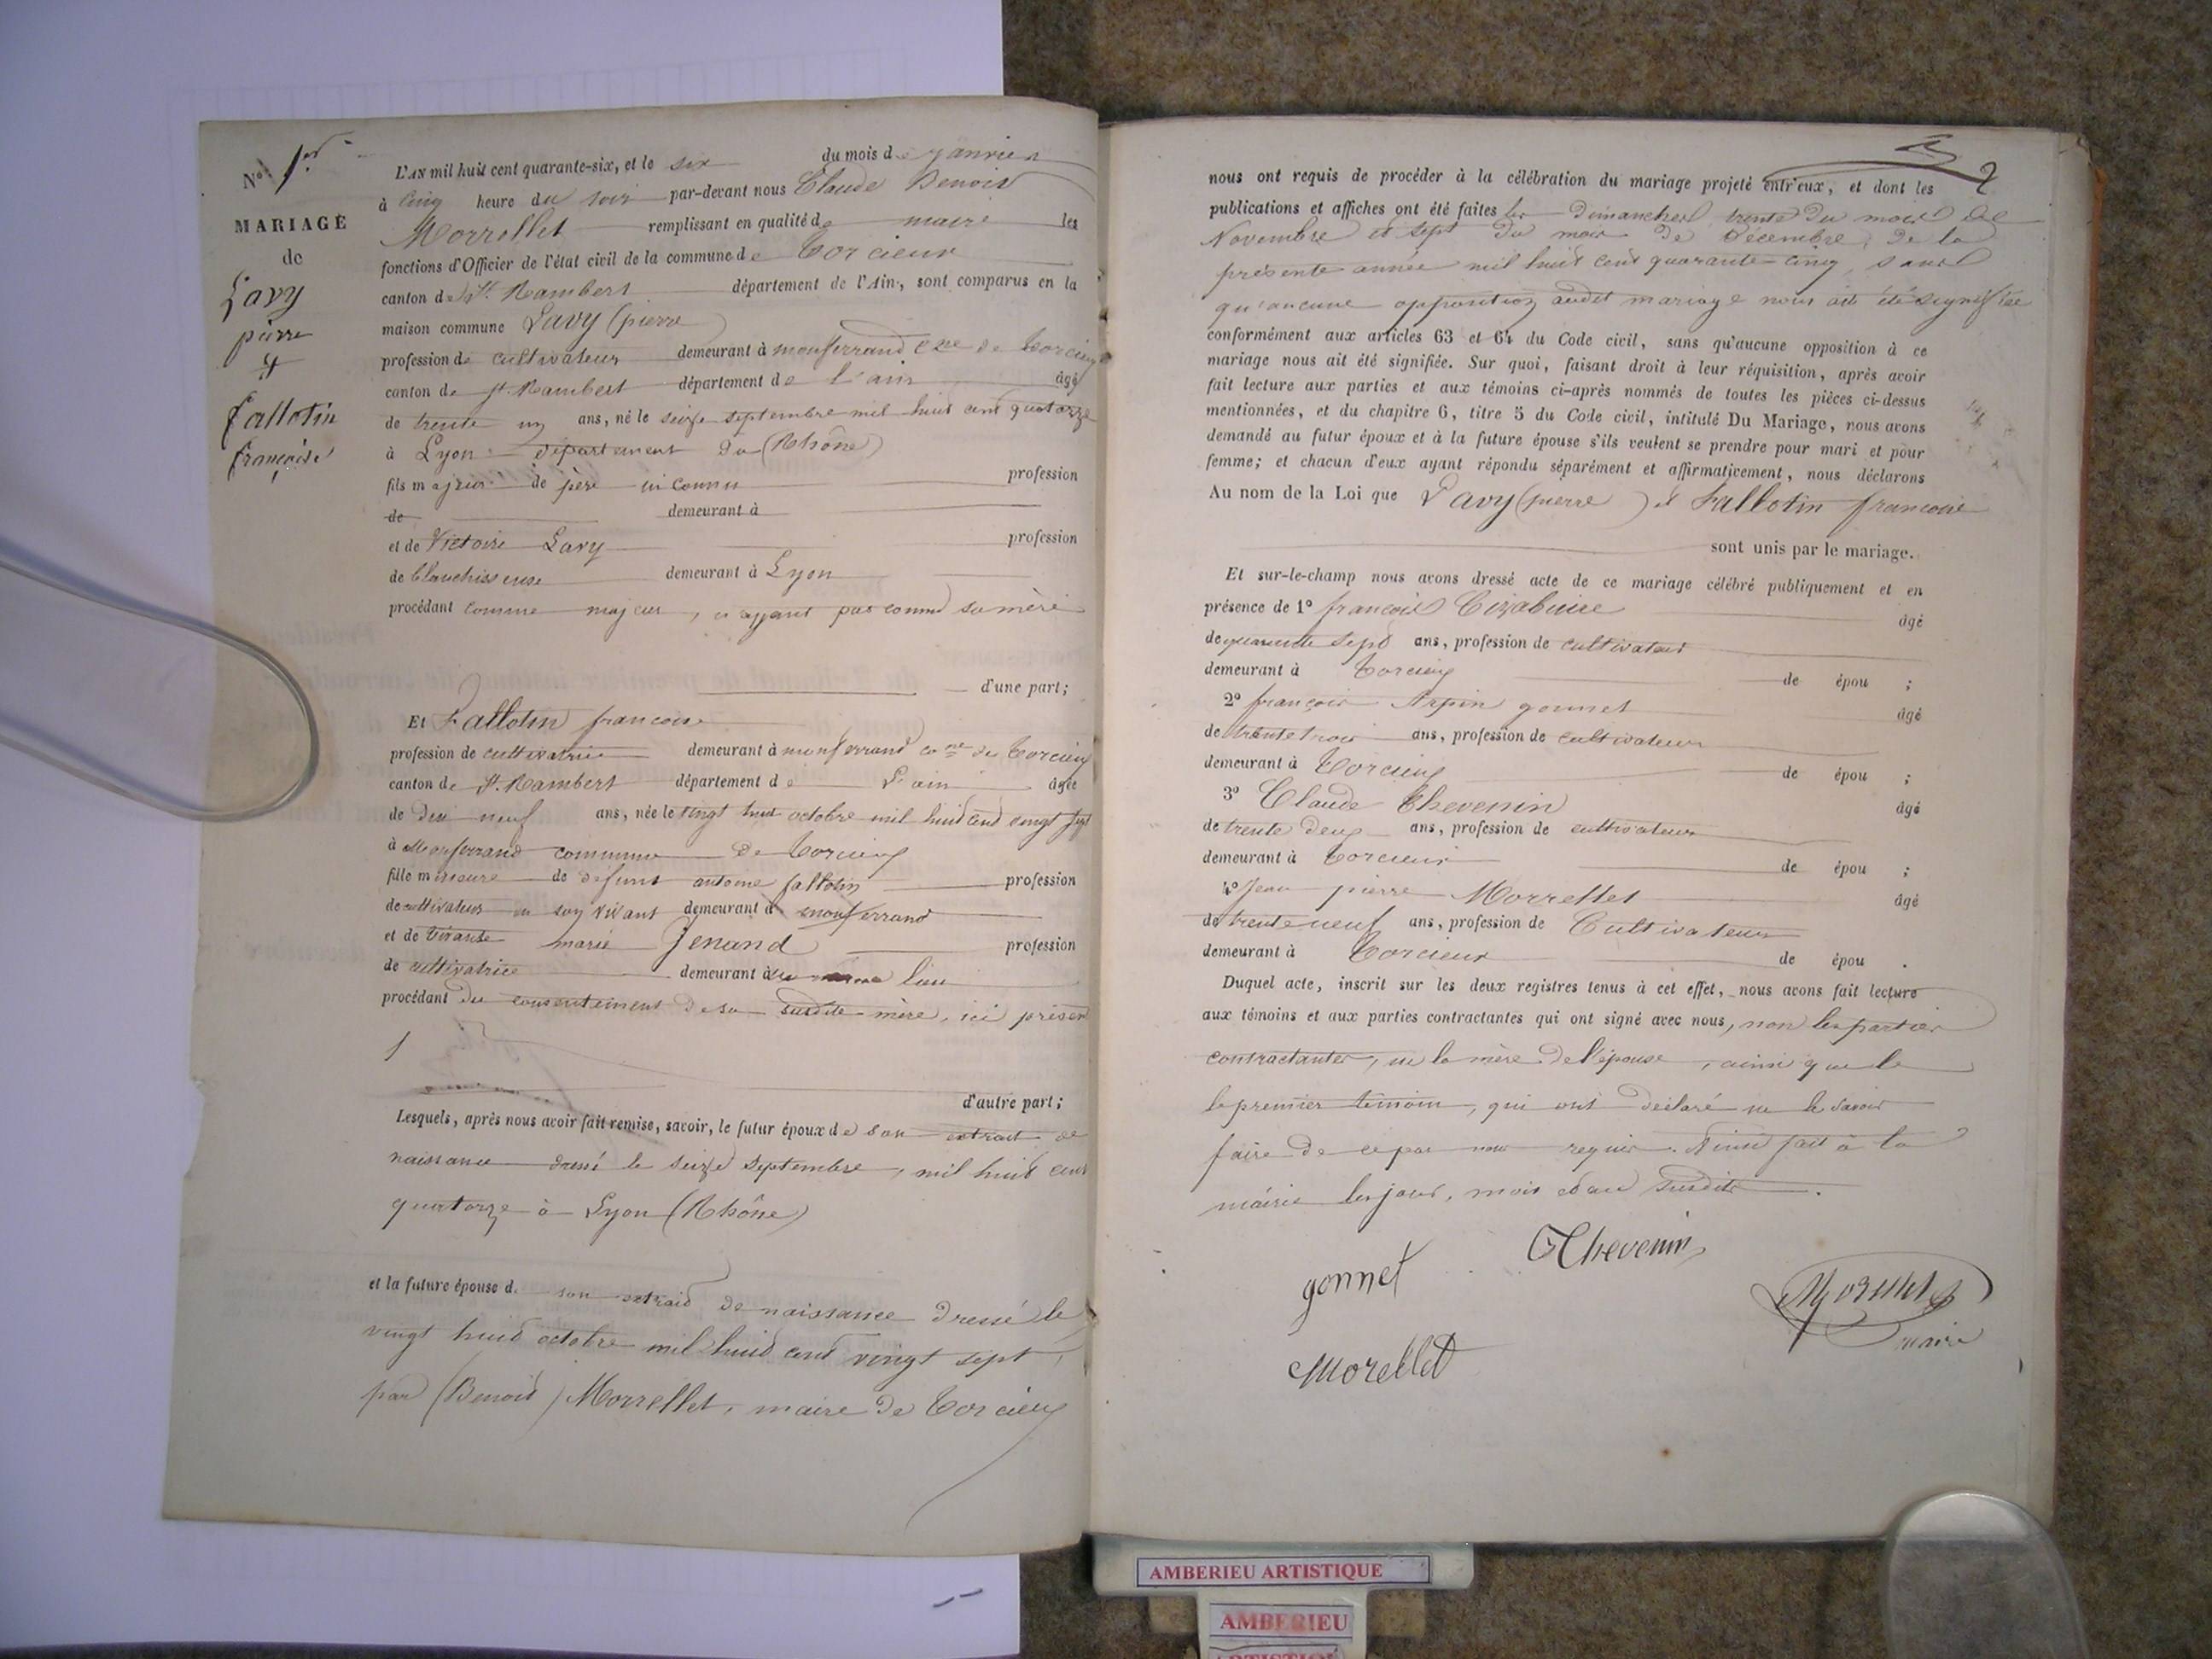 N° 1er
MARIAGE
de
Lavy
pierre
&
fallotin
françoise
L'AN mil huit cent quarante-six, et le six du mois de janvier
à cinq heure du soir par-devant nous Claude Benoit
Morrellet remplissant en qualité de maire les
fonctions d'Officier de l'état civil de la commune de Torcieux
canton de St. Rambert département de l'Ain, sont comparus en la
maison commune Lavy (pierre)
profession de cultivateur demeurant à monferrand Cne de Torcieux
canton de St. Rambert département de l'ain âgé
de trente un ans, né le seize septembre mil huit cent quatorze
à Lyon département du (Rhône)
fils majeur de père inconnu profession
de demeurant à
et de Victoire Lavy profession
de blanchisseuse demeurant à Lyon
procédant comme majeur, n'ayant pas connu sa mère
d'une part;
Et Fallotin francoise
profession de cultivatrice demeurant à monferrand cone de Torcieux
canton de St. Rambert département de L'ain âgée
de dix neuf ans, née le vingt huit octobre mil huit cent vingt sept
à Monferrand commune de Torcieux
fille mineure de defunt antoine fallotin profession
de cultivateur en son vivant demeurant à monferrand
et de vivante marie Jenand profession
de cultivatrice demeurant à lieu
procédant du consentement de sa susdite mère, ici présen
d'autre part;
Lesquels, après nous avoir fait remise, savoir, le futur époux de son extrait de
naissance dressé le seize septembre, mil huit cent
quatorze à Lyon (Rhône)
et la future épouse d. son extrait de naissance dressé le
vingt huit octobre mil huit cent vingt sept,
par (Benoit) Morrellet, maire de Torcieux
2
nous ont requis de procéder à la célébration du mariage projeté entr'eux, et dont les
publications et affiches ont été faites les dimanches trente du mois de
Novembre et sept du mois de décembre, de la
présente année mil huit cent quarante cinq, sans
qu'aucune opposition audit mariage nous ait été signifiée
conformément aux articles 63 et 64 du Code civil, sans qu'aucune opposition à ce
mariage nous ait été signifiée. Sur quoi, faisant droit à leur réquisition, après avoir
fait lecture aux parties et aux témoins ci-après nommés de toutes les pièces ci-dessus
mentionnées, et du chapitre 6, titre 5 du Code civil, intitulé Du Mariage, nous avons
demandé au futur époux et à la future épouse s'ils veulent se prendre pour mari et pour
femme; et chacun d'eux ayant répondu séparément et affirmativement, nous déclarons
Au nom de la Loi que Lavy (pierre) et Fallotin francoise
sont unis par le mariage.
Et sur-le-champ nous avons dressé acte de ce mariage célébré publiquement et en
présence de 1° françois âgé
de quarante sept ans, profession de cultivateur
demeurant à Torcieux de épou ;
2° françois Arpin gonnet âgé
de trente trois ans, profession de cultivateur
demeurant à Torcieux de épou ;
3° Claude Chevenin âgé
de trente deux ans, profession de cultivateur
demeurant à Torcieux de épou ;
4° Jean pierre Morrellet âgé
de trente neuf ans, profession de Cultivateur
demeurant à Torcieux de épou .
Duquel acte, inscrit sur les deux registres tenus à cet effet, nous avons fait lecture
aux témoins et aux parties contractantes qui ont signé avec nous, non les parties
contractantes, ni la mère de l'épouse, ainsi que le
le premier témoin, qui ont déclaré ne le savoir
faire de ce par nous requis. Ainsi fait à la
mairie les jour, mois et an susdits.
gonnet
Chevenin
Morellet
maire
Morellet
AMBERIEU ARTISTIQUE
AMBERIEU
ARTISTIQUE